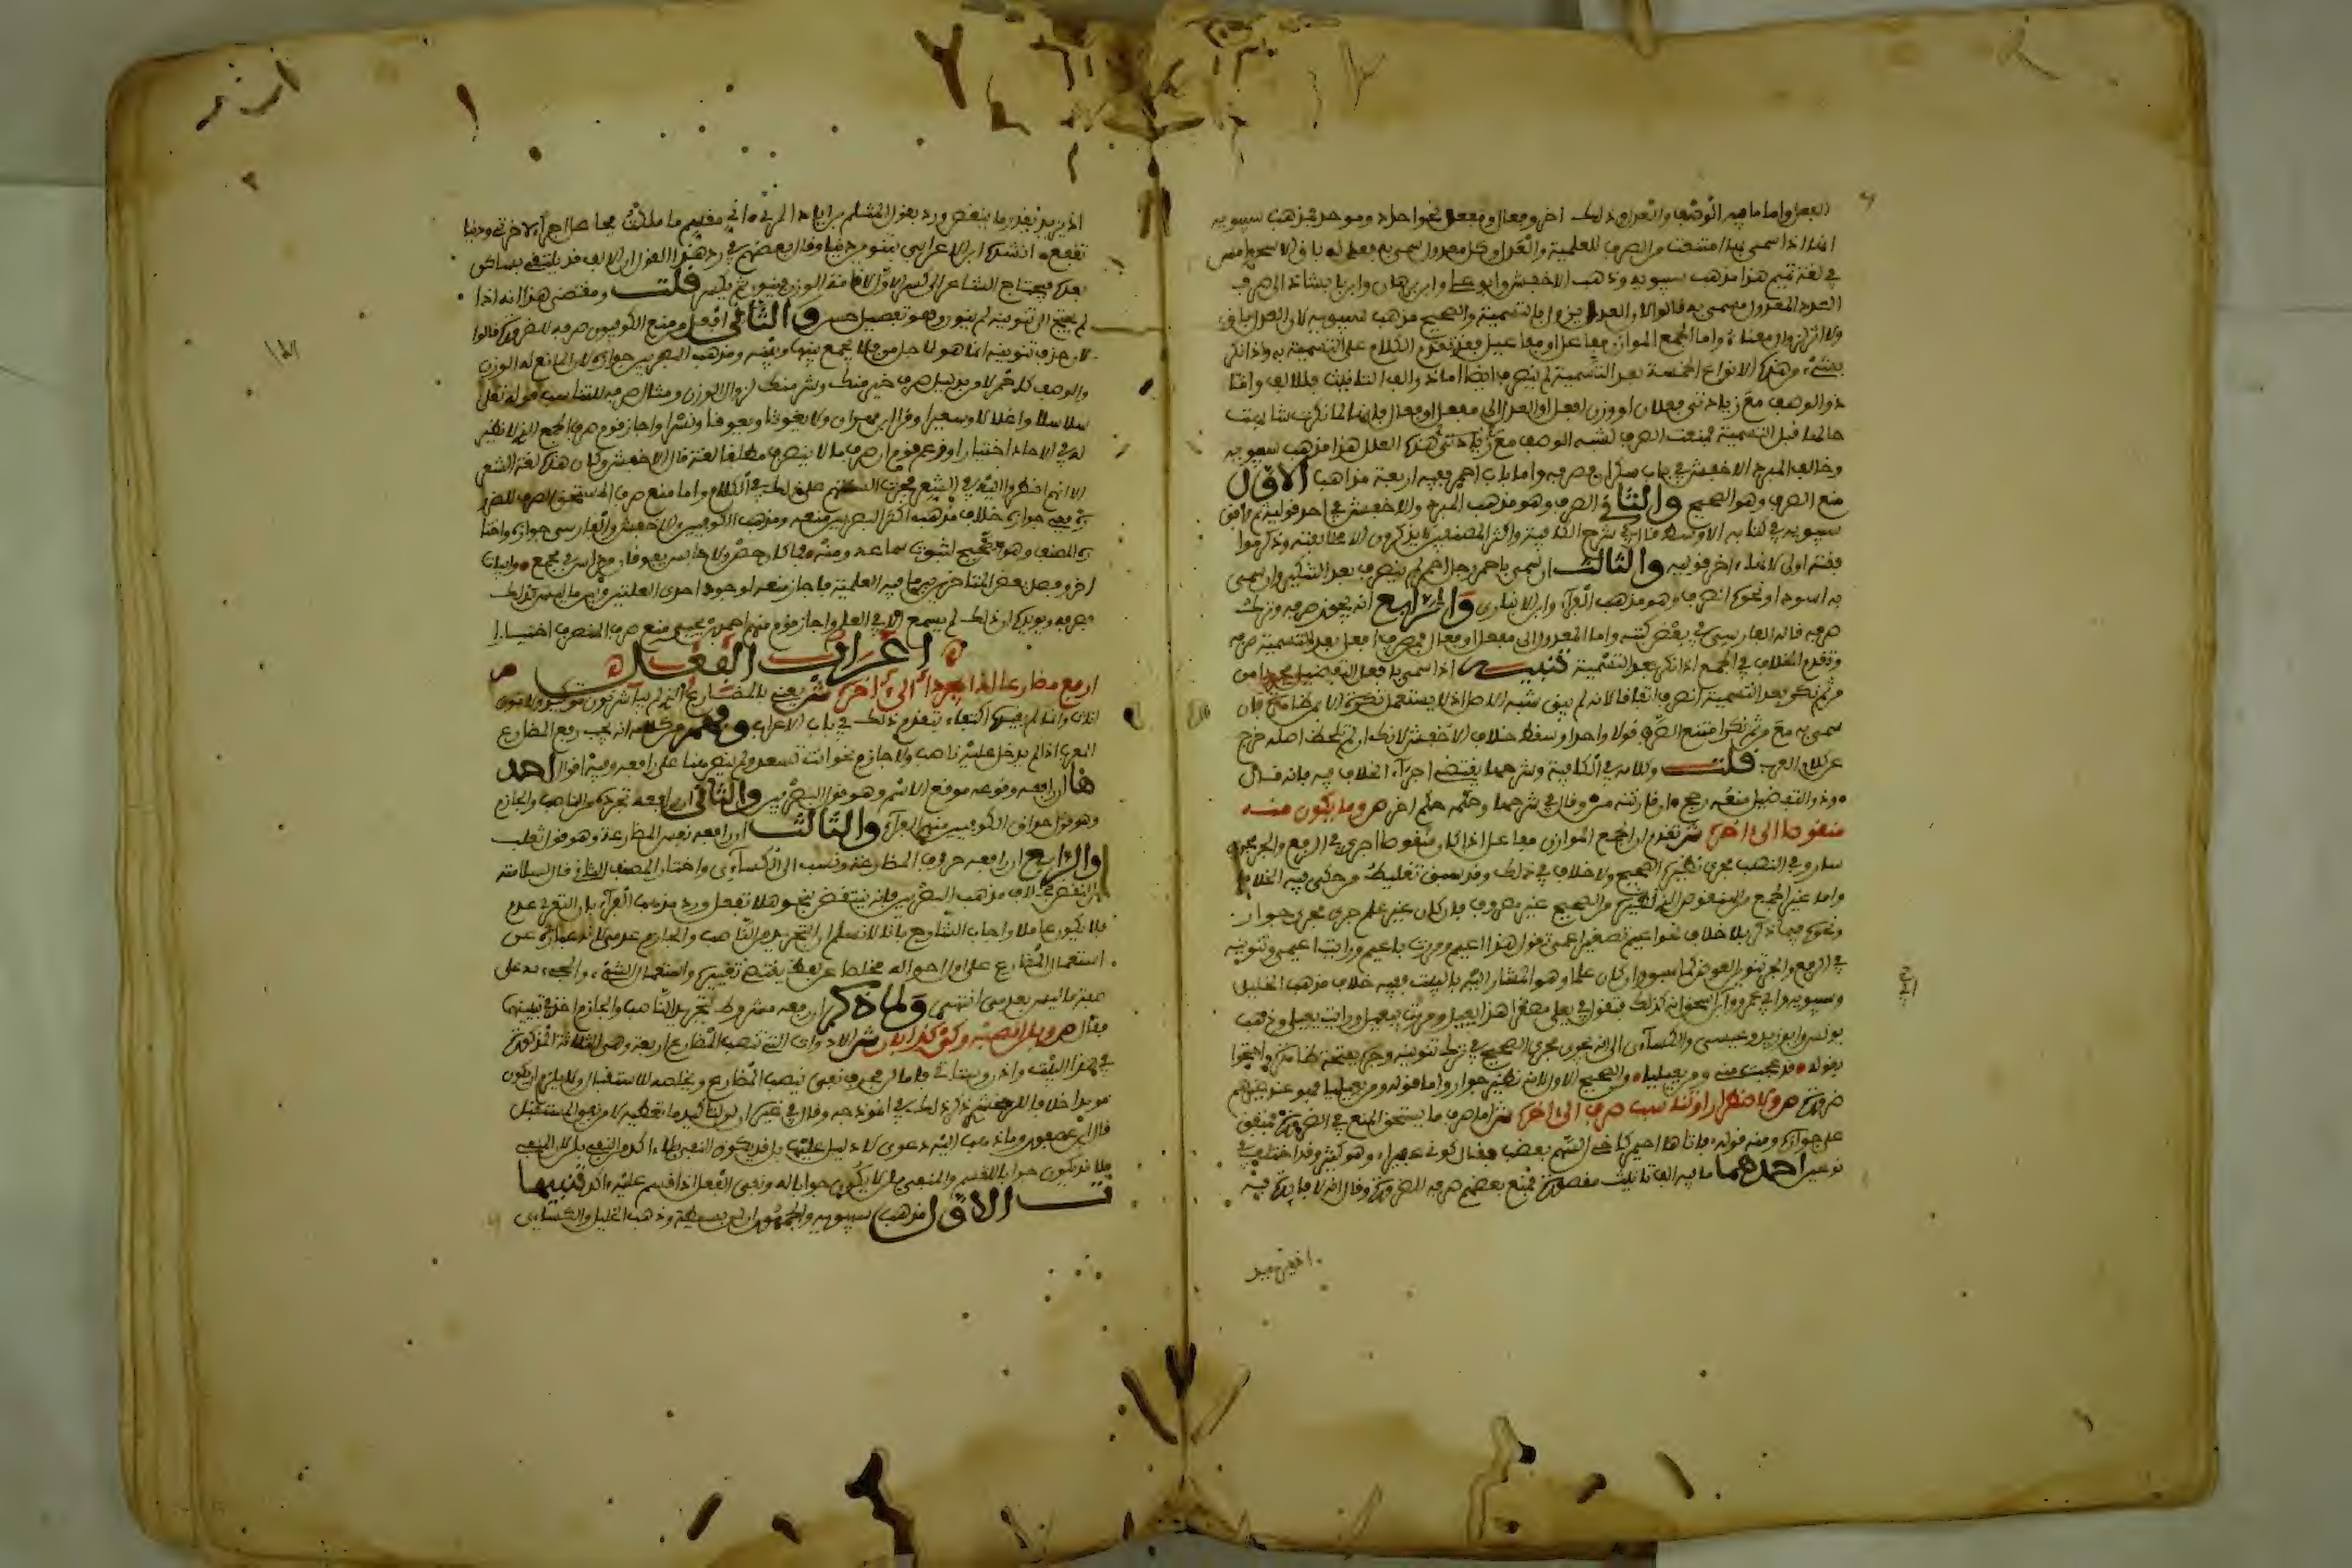 العدل واما ما فيه الوصف والعدل وذلك اخر وفعال ومفعل نحو احاد وموحد فمذهب سيبويه
انها اذا سمي بها امتنعت من الصرف للعلمية والعدل وكل معدول سمي به فعدله باق الا سحر وامس
في لغة تميم هذا مذهب سيبويه وذهب الاخفش وابو علي وابن برهان وابن بابشاذ الى صرف
العدد المعدول مسمى به قالوا لان العدل يزول بالتسمية والصحيح مذهب سيبويه لان العدل باق
ولا اثر لزوال معناه واما الجمع الموازن مفاعل او مفاعيل فقد تقدم الكلام على التسمية به واذا نكر
بشيء وهذه الانواع الخمسة بعد التسمية لم ينصرف ايضا اما ذو الف التانيث فللالف واما
ذو الوصف مع زيادتي فعلان او وزن افعل او العدل الى مفعل او فعال فلانها لما نكرت شابهت
حالها قبل التسمية فمنعت الصرف لشبه الوصف مع زيادتي هذه العلل هذا مذهب سيبويه
وخالف المبرد الاخفش في باب سكران فصرفه واما باب احمر ففيه اربعة مذاهب الاول
منع الصرف وهو الصحيح والثاني الصرف وهو مذهب المبرد والاخفش في احد قوليه ثم وافق
سيبويه في كتابه الاوسط قال في شرح الكافية واكثر المصنفين لا يذكرون الا مخالفته وذكر موا
فقته اولى لانها اخر قوليه والثالث ان سمي باحمر رجل احمر لم ينصرف بعد التنكير وان سمي
به اسود او نحوه انصرف وهو مذهب الفراء وابن الانباري والرابع انه يجوز صرفه وترك
صرفه قاله الفارسي في بعض كتبه واما المعدول الى مفعل او فعال فمن صرف افعل بعد التسمية صرفه
وتقدم الخلاف في الجمع اذا نكر بعد التسمية تنبيه اذا سمي بافعل التفضيل مجردا من
من ثم نكر بعد التسمية انصرف اتفاقا لانه لم يبق شبه الاصل اذ لا يستعمل نكرة الا بمن ظاهرة فان
سمي به مع من ثم نكر امتنع الصرف قولا واحدا وسقط خلاف الاخفش لانك ان لم تلحظ اصله خرج
عن كلام العرب قلت وكلامه في الكافية وشرحها يقتضي اجراء الخلاف فيه فانه قال
وذو التفضيل منعه رجح ان قارنته من وقال في شرحها وحكمه حكم احمر ص وما يكون منه
منقوصا الى اخره ش تقدم ان الجمع الموازن مفاعل اذا كان منقوصا اجري في الرفع والجر مجرى
سار وفي النصب مجرى نظيره الصحيح ولا خلاف في ذلك وقد سبق تغليط من حكى فيه الخلاف
واما غير الجمع من المنقوص الذي نظيره من الصحيح غير مصروف فان كان غير علم جرى مجرى جوار
ونحوه فيما ذكر بلا خلاف نحو اعيم تصغير اعمى تقول هذا اعيم ومررت باعيم ورايت اعيمي وتنوينه
في الرفع والجر تنوين العوض كما سبق وان كان علما وهو المشار اليه بالبيت ففيه خلاف مذهب الخليل
وسيبويه وابي عمرو وابن ابي اسحق انه كذلك فتقول في يعلى مصغرا هذا يعيل ومررت بيعيل ورايت يعيلي وذهب
يونس وابو زيد وعيسى والكسائي الى انه يجرى مجرى الصحيح في ترك تنوينه وجره بفتحة ظاهرة واحتجوا
بقوله قد عجبت مني ومن يعيليا والصحيح الاول لانه نظير جوار واما قوله ومن يعيليا فهو عندهم
ضرورة ص ولاضطرار او تناسب صرف الى اخره ش اما صرف ما يستحق المنع في الضرورة فمتفق
على جوازه ومنه قوله فاتاها احيمر كاخي السهم بعضب فقال كوني عقيرا وهو كثير وقد اختلف في
نوعين احدهما ما فيه الف تانيث مقصورة فمنع بعضهم صرفه للضرورة وقال انه لا فايدة فيه
اذ يزيد بقدر ما ينقص ورد بقول المثلم بن رياح المري اني مقسم ما ملكت فجاعل اجرا لاخرة ودنيا
تنفع انشده ابن الاعرابي بتنوين دنيا وقال بعضهم في رد هذا القول ان الالف قد يلتقي بساكن
بعده فيحتاج الشاعر الى كسر الاول لاقامة الوزن فينون ثم يكسر قلت ومقتضى هذا انه اذا
لم يحتج الى تنوينه لم ينون وهو تفصيل حسن والثاني افعل من منع الكوفيون صرفه للضرورة قالوا
لان حذف تنوينه انما هو لاجل من فلا يجمع بينها وبينه ومذهب البصريين جوازه لان المانع له الوزن
والوصف كاحمر لا من بدليل صرف خير منك وشر منك لزوال الوزن ومثال صرفه للتناسب قوله تعلى
سلاسلا واغلالا وسعيرا وقرا ابن مهران ولا يغوثا ويعوقا ونسرا واجاز قوم صرف الجمع الذي لا نظير
له في الاحاد اختيارا وزعم قوم ان صرف ما لا ينصرف مطلقا لغة قال الاخفش وكان هذه لغة الشعرا
لانهم اضطروا اليه في الشعر فجرت السنتهم على ذلك في الكلام واما منع صرف المستحق الصرف للضرو
رة ففي جوازه خلاف مذهب اكثر البصريين منعه ومذهب الكوفيين والاخفش والفارسي جوازه واختا
ره المصنف وهو الصحيح لثبوت سماعه ومنه وما كان حصن ولا حابس يفوقان مرداس في مجمع وابيات
اخر وفصل بعض المتاخرين بين ما فيه العلمية فاجاز منعه لوجود احدى العلتين وبين ما ليس كذلك
فصرفه ويويده ان ذلك لم يسمع الا في العلم واجاز قوم منهم احمد بن يحيى منع صرف المنصرف اختيارا
اعراب الفعل ص
ارفع مضارعا اذا يجرد الى اخره ش يعني بالمضارع الذي لم يباشر نون توكيد ولا نون
اناث وانما لم يقيده اكتفاء بتقدم ذلك في باب الاعراب وفهم من كلامه انه يجب رفع المضارع
المعرب اذا لم يدخل عليه ناصب ولا جازم نحو انت تسعد ولم ينص هنا على رافعه وفيه اقوال احد
ها ان رافعه وقوعه موقع الاسم وهو قول البصريين والثاني ان رافعه تجرده من الناصب والجازم
وهو قول حذاق الكوفيين منهم الفراء والثالث ان رافعه نفس المضارعة وهو قول ثعلب
والرابع ان رافعه حروف المضارعة ونسب الى الكسائي واختار المصنف الثاني قال لسلامته
من النقض بخلاف مذهب البصريين فانه ينتقض بنحو هلا تفعل ورد مذهب الفراء بان التعري عدم
فلا يكون عاملا واجاب الشارح بانا لا نسلم ان التجريد من الناصب والجازم عدمي لانه عبارة عن
استعمال المضارع على اول احواله مخلصا عن لفظ يقتضي تغييره واستعمال الشيء والمجيء به على
صفة ما ليس بعدمي انتهى ولما ذكر ان رفعه مشروط بتجرده من الناصب والجازم اخذ في تبيينها
فقال ص وبلن انصبه وكي كذا بان ش الادوات التي تنصب المضارع اربعة وهي الثلاثة المذكورة
في هذا البيت واذن وستاتي فاما لن فحرف نفي ينصب المضارع ويخلصه للاستقبال ولا يلزم ان يكون
مويدا خلافا للزمخشري ذكر ذلك في انموذجه وقال في غيره ان لن لتاكيد ما تعطيه لا من نفي المستقبل
قال ابن عصفور وما ذهب اليه دعوى لا دليل عليها بل قد يكون النفي بلا اكد من النفي بلن لان المنفي
بلا قد يكون جوابا للقسم والمنفي بلن لا يكون جوابا له ونفي الفعل اذا اقسم عليه اكد تنبيها
ت الاول مذهب سيبويه والجمهور ان لن بسيطة وذهب الخليل والكسائي